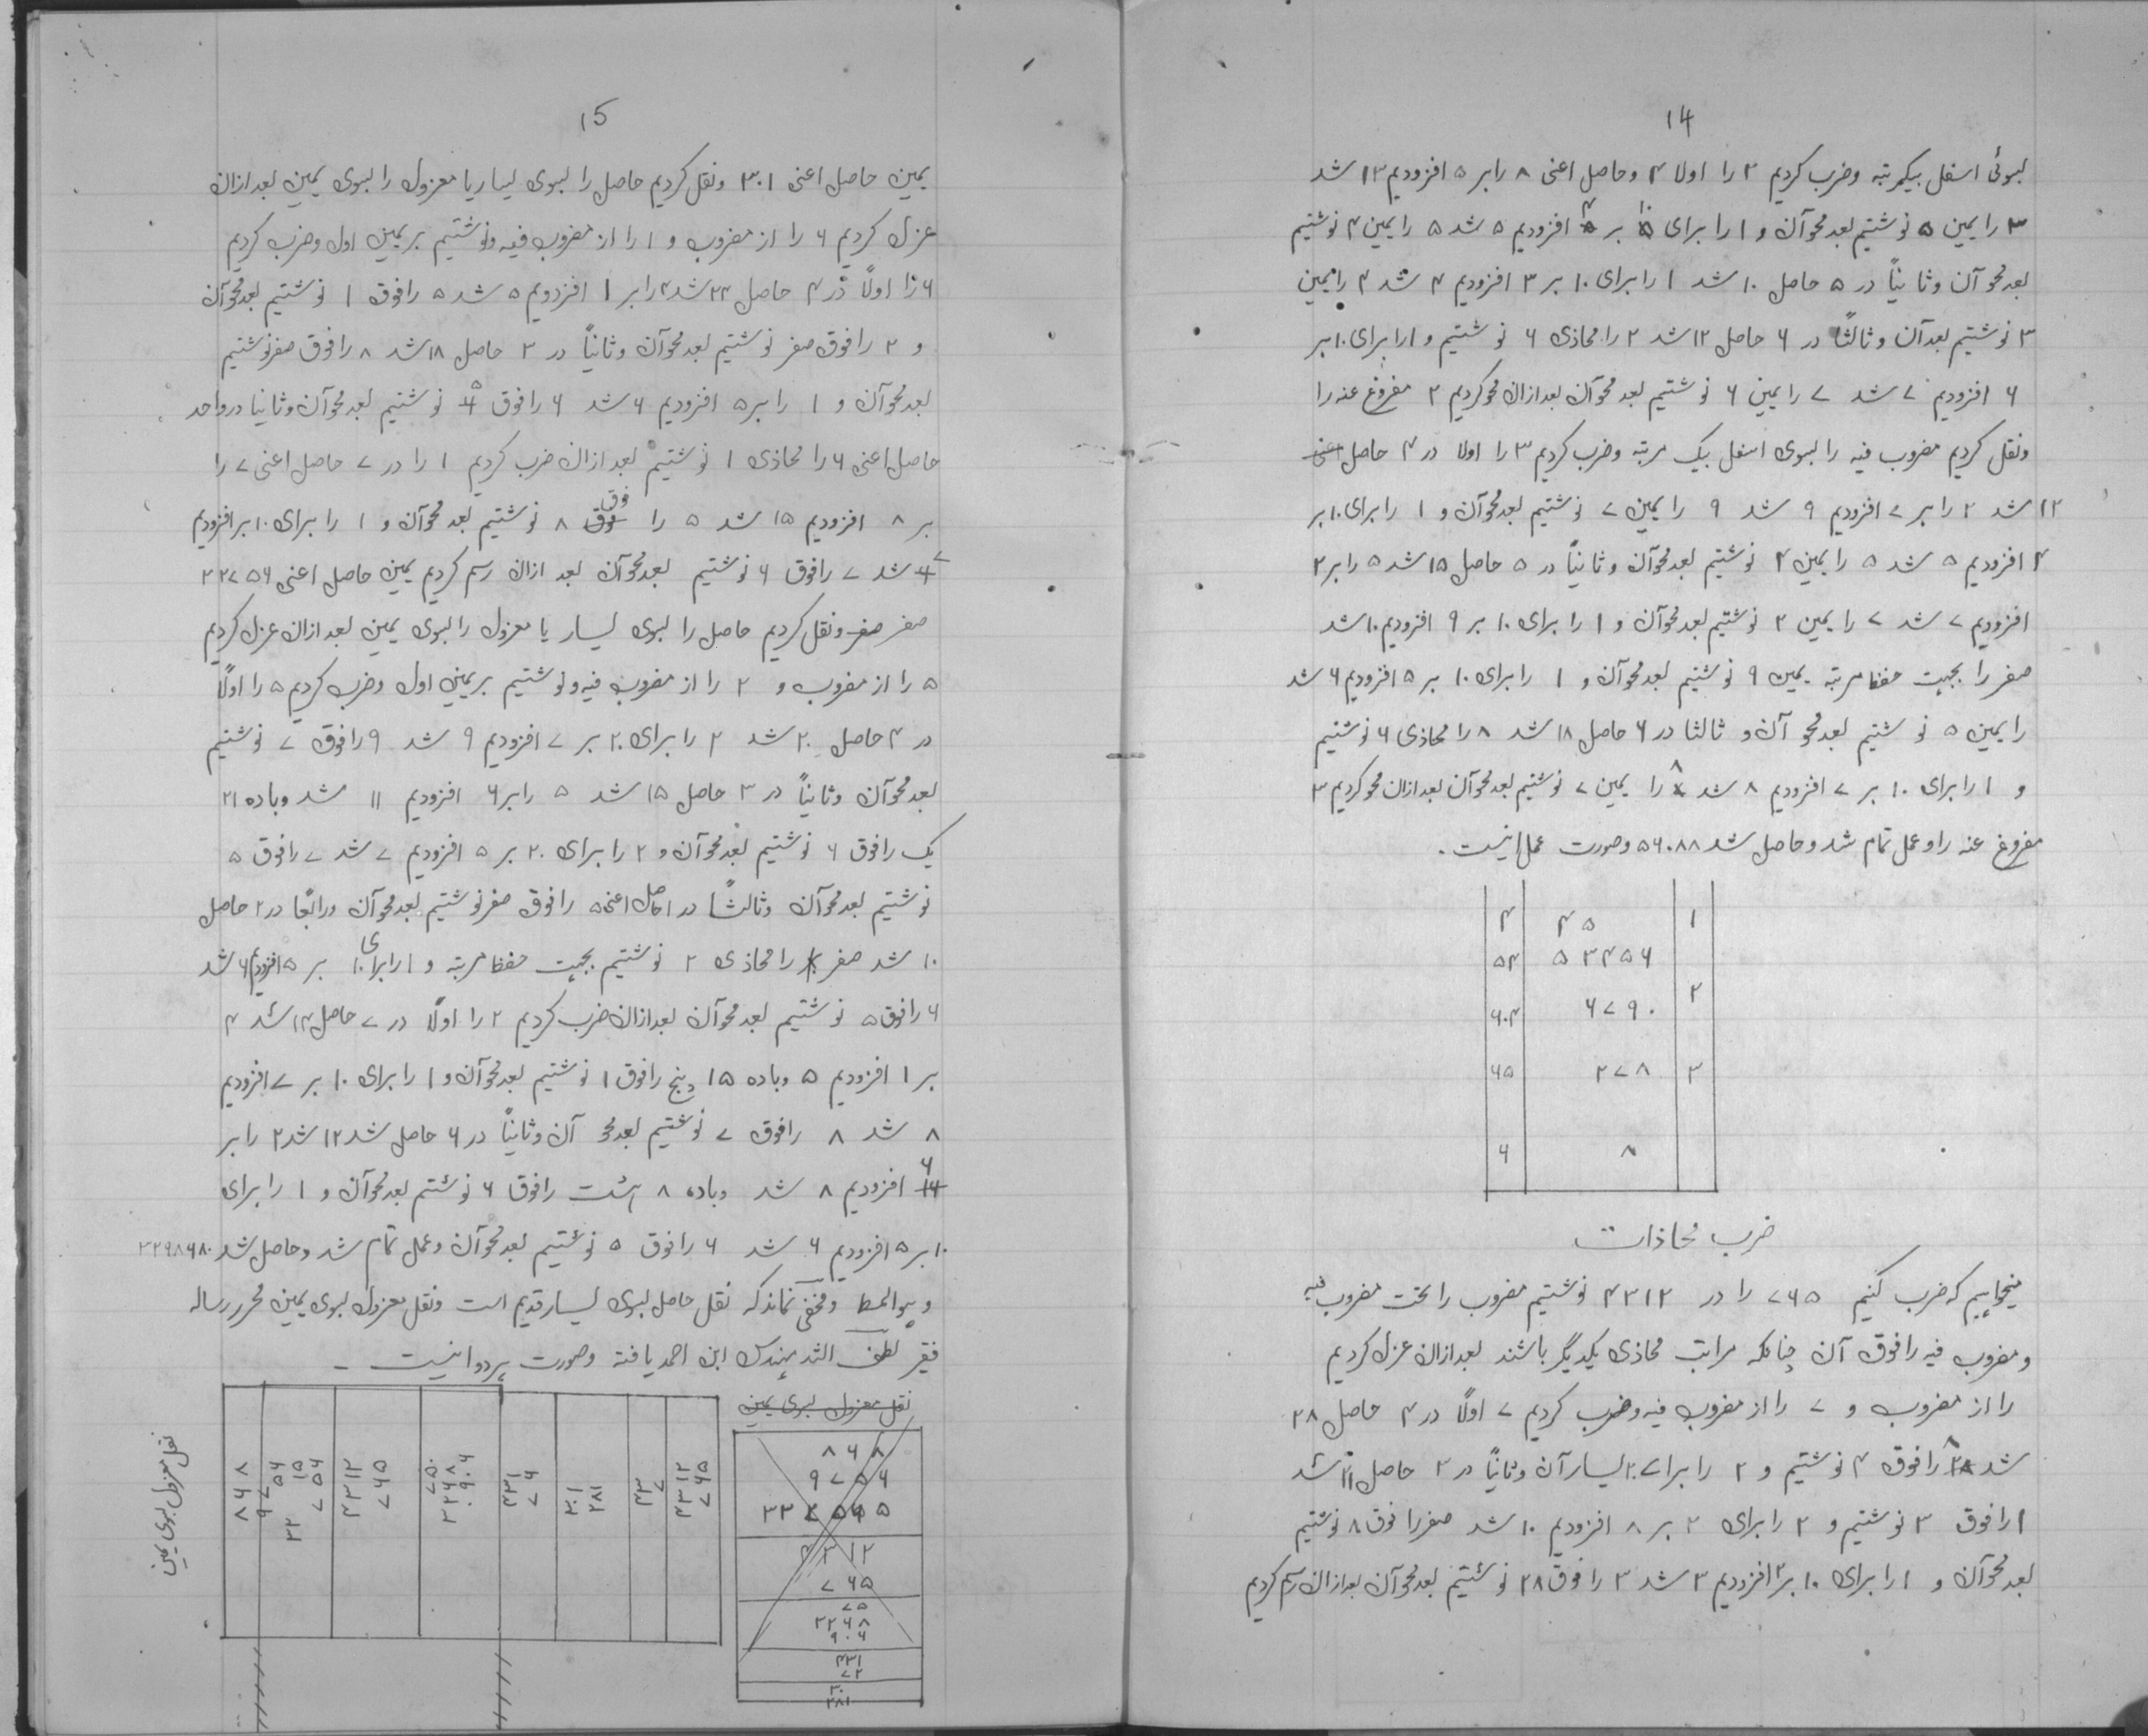 14
بسوئی اسفل بیکمرتبه وضرب کردیم ۲ را اولا ۴ وحاصل اعنی ۸ را بر ۵ افزودیم ۱۳ شد
۳ را یمین ۵ نوشتیم بعد محو آن و ۱ را برای ۱۰ بر ۴ افزودیم ۵ شد ۵ را یمین ۴ نوشتیم
بعد محو آن وثانیاً در ۵ حاصل ۱۰ شد ۱ را برای ۱۰ بر ۳ افزودیم ۴ شد ۴ را یمین
۳ نوشتیم بعد آن وثالثاً در ۶ حاصل ۱۲ شد ۲ را محاذی ۶ نوشتیم و ۱ را برای ۱۰ بر
۶ افزودیم ۷ شد ۷ را یمین ۶ نوشتیم بعد محو آن بعد ازان محو کردیم ۲ مفروغ عنه را
ونقل کردیم مضروب فیه را بسوی اسفل بیک مرتبه وضرب کردیم ۳ را اولا در ۴ حاصل
۱۲ شد ۲ را بر ۷ افزودیم ۹ شد ۹ را یمین ۷ نوشتیم بعد محو آن و ۱ را برای ۱۰ بر
۴ افزودیم ۵ شد ۵ را یمین ۴ نوشتیم بعد محو آن وثانیاً در ۵ حاصل ۱۵ شد ۵ را بر ۲
افزودیم ۷ شد ۷ را یمین ۲ نوشتیم بعد محو آن و ۱ را برای ۱۰ بر ۹ افزودیم ۱۰ شد
صفر را بجهت حفظ مرتبه یمین ۹ نوشتیم بعد محو آن و ۱ را برای ۱۰ بر ۵ افزودیم ۶ شد
را یمین ۵ نوشتیم بعد محو آن و ثالثا در ۶ حاصل ۱۸ شد ۸ را محاذی ۶ نوشتیم
و ۱ را برای ۱۰ بر ۷ افزودیم ۸ شد ۸ را یمین ۷ نوشتیم بعد محو آن بعد ازان محو کردیم ۳
مفروغ عنه را وعمل تمام شد وحاصل شد ۵۶۰۸۸ وصورت عمل اینست .
۴ ۴ ۵ ۱
۵۴ ۵ ۳ ۴ ۵ ۶
۶۰۴ ۶ ۷ ۹ ۰ ۲
۶۵ ۲ ۷ ۸ ۳
۶ ۸
ضرب محاذات
میخواهیم که ضرب کنیم ۷۶۵ را در ۴۳۱۲ نوشتیم مضروب را تحت مضروب فیه
ومضروب فیه را فوق آن چنانکه مراتب محاذی یکدیگر باشند بعد ازان عزل کردیم
را از مضروب و ۷ را از مضروب فیه وضرب کردیم ۷ اولاً در ۴ حاصل ۲۸
شد ۸ را فوق ۴ نوشتیم و ۲ را برای ۲۰ یسار آن وثانیاً در ۳ حاصل ۲۱ شد
۱ را فوق ۳ نوشتیم و ۲ را برای ۲۰ بر ۸ افزودیم ۱۰ شد صفر را فوق ۸ نوشتیم
بعد محو آن و ۱ را برای ۱۰ بر ۲ افزودیم ۳ شد ۳ را فوق ۲۸ نوشتیم بعد محو آن بعد ازان رسم کردیم
15
یمین حاصل اعنی ۳۰۱ ونقل کردیم حاصل را بسوی یسار یا معزول را بسوی یمین بعد ازان
عزل کردیم ۶ را از مضروب و ۱ را از مضروب فیه ونوشتیم بر یمین اول وضرب کردیم
۶ را اولاً در ۴ حاصل ۲۴ شد ۴ را بر ۱ افزودیم ۵ شد ۵ را فوق ۱ نوشتیم بعد محو آن
و ۲ را فوق صفر نوشتیم بعد محو آن وثانیاً در ۳ حاصل ۱۸ شد ۸ را فوق صفر نوشتیم
بعد محو آن و ۱ را بر ۵ افزودیم ۶ شد ۶ را فوق ۵ نوشتیم بعد محو آن وثانیا در واحد
حاصل اعنی ۶ را محاذی ۱ نوشتیم بعد ازان ضرب کردیم ۱ را در ۷ حاصل اعنی ۷ را
بر ۸ افزودیم ۱۵ شد ۵ را فوق ۸ نوشتیم بعد محو آن و ۱ را برای ۱۰ بر افزودیم
۷ شد ۷ را فوق ۶ نوشتیم بعد محو آن بعد ازان رسم کردیم یمین حاصل اعنی ۳۲۷۵۶
صفر صفر ونقل کردیم حاصل را بسوی یسار یا معزول را بسوی یمین بعد ازان عزل کردیم
۵ را از مضروب و ۲ را از مضروب فیه ونوشتیم بر یمین اول وضرب کردیم ۵ را اولاً
در ۴ حاصل ۲۰ شد ۲ را برای ۲۰ بر ۷ افزودیم ۹ شد ۹ را فوق ۷ نوشتیم
بعد محو آن وثانیاً در ۳ حاصل ۱۵ شد ۵ را بر ۶ افزودیم ۱۱ شد وباده ۲۱
یک را فوق ۶ نوشتیم بعد محو آن و ۲ را برای ۲۰ بر ۵ افزودیم ۷ شد ۷ را فوق ۵
نوشتیم بعد محو آن وثالثاً در ۱ حاصل اعنی ۵ را فوق صفر نوشتیم بعد محو آن ورابعًا در ۲ حاصل
۱۰ شد صفر را محاذی ۲ نوشتیم بجهت حفظ مرتبه و ۱ را برای ۱۰ بر ۵ افزودیم ۶ شد
۶ را فوق ۵ نوشتیم بعد محو آن بعد ازان ضرب کردیم ۲ را اولاً در ۷ حاصل ۱۴ شد ۴
بر ۱ افزودیم ۵ وباده ۱۵ پنج را فوق ۱ نوشتیم بعد محو آن و ۱ را برای ۱۰ بر ۷ افزودیم
۸ شد ۸ را فوق ۷ نوشتیم بعد محو آن وثانیاً در ۶ حاصل شد ۱۲ شد ۲ را بر
۶ افزودیم ۸ شد وباده ۸ هشت را فوق ۶ نوشتم بعد محو آن و ۱ را برای
۱۰ بر ۵ افزودیم ۶ شد ۶ را فوق ۵ نوشتیم بعد محو آن وعمل تمام شد وحاصل شد ۳۲۹۸۶۸۰
وهو المط ومخفی نماند که نقل حاصل بسوی یسار قدیم است ونقل معزول بسوی یمین محرر رساله
فقیر لطف الله مهندس ابن احمد یافته وصورت هر دو اینست _
نقل معزول بسوی یمین
۸ ۶ ۸
۹ ۷ ۵ ۶
۴ ۳ ۱ ۲
۷ ۶ ۵
۷۵
۳۲۶۸
۹۰۶
۴۳۱
۷۲
۳۰
۲۸۱
نقل معزول بسوی یمین
۸ ۶ ۸
۴۳۱۲
۷۶۵
۷۵۰
۳۲۶۸
۰۹۰۶
۴۳۱
۷۶
۳۰۱
۲۸۱
۴۳
۷
۴۳۱۲
۷۶۵